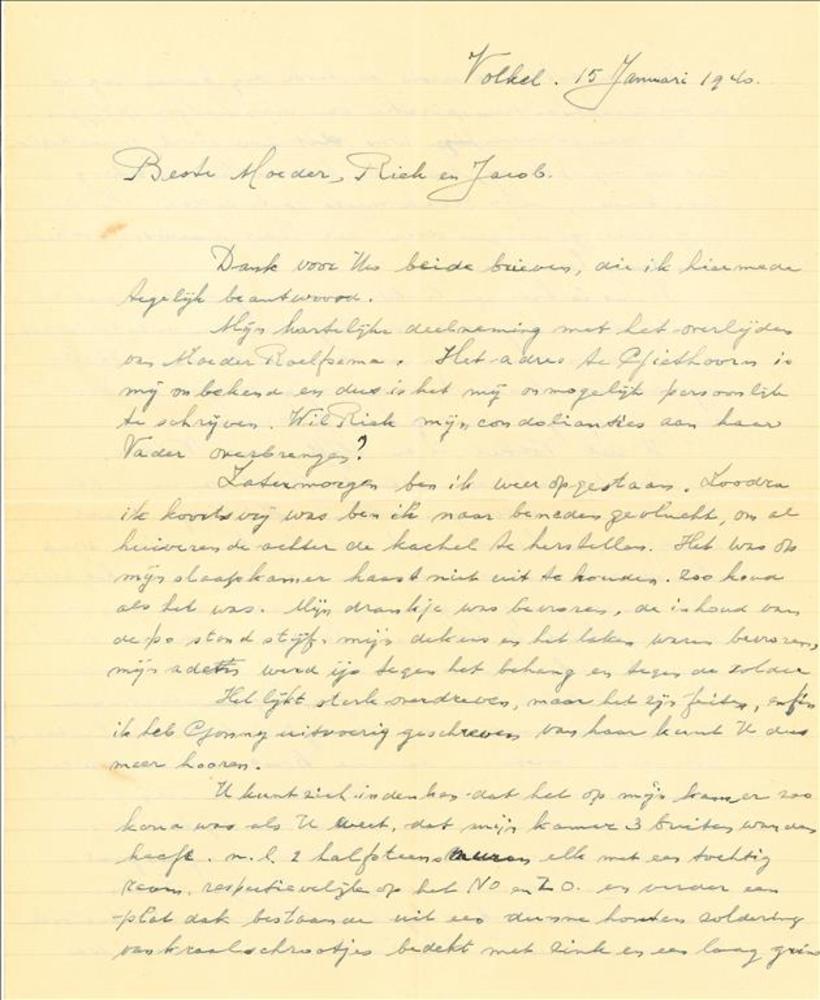 Volkel. 15 Januari 1940.
Beste Moeder, Riek en Jacob.
Dank voor Uw beide brieven, die ik hiermede
tegelijk beantwoord.
Mijn hartelijke deelneming met het overlijden
van Moeder Roelfsema. Het adres te Giethoorn is
mij onbekend en dus is het mij onmogelijk persoonlijk
te schrijven. Wil Riek mijn condolianties aan haar
Vader overbrengen?
Zatermorgen ben ik weer opgestaan. Zoodra
ik koortsvrij was ben ik naar beneden gevlucht, om al
huiverende achter de kachel te herstellen. Het was op
mijn slaapkamer haast niet uit te houden. zoo koud
als het was. Mijn drankje was bevroren, de inhoud van
de po stond stijf, mijn dekens en het laken waren bevroren,
mijn adem werd ijs tegen het behang en tegen de zolder
Het lijkt sterk overdreven, maar het zijn feiten, enfin
ik heb Conny uitvoerig geschreven van haar kunt U dus
meer hooren.
U kunt zich indenken dat het op mijn kamer zoo
koud was als U weet, dat mijn kamer 3 buiten wanden
heeft. n.l. 2 halfsteens muren elk met een tochtig
raam. respectievelijk op het NO en ZO. en verder een
plat dak bestaande uit een dunne houten zoldering
van kraalschrootjes bedekt met zink en een laag grind